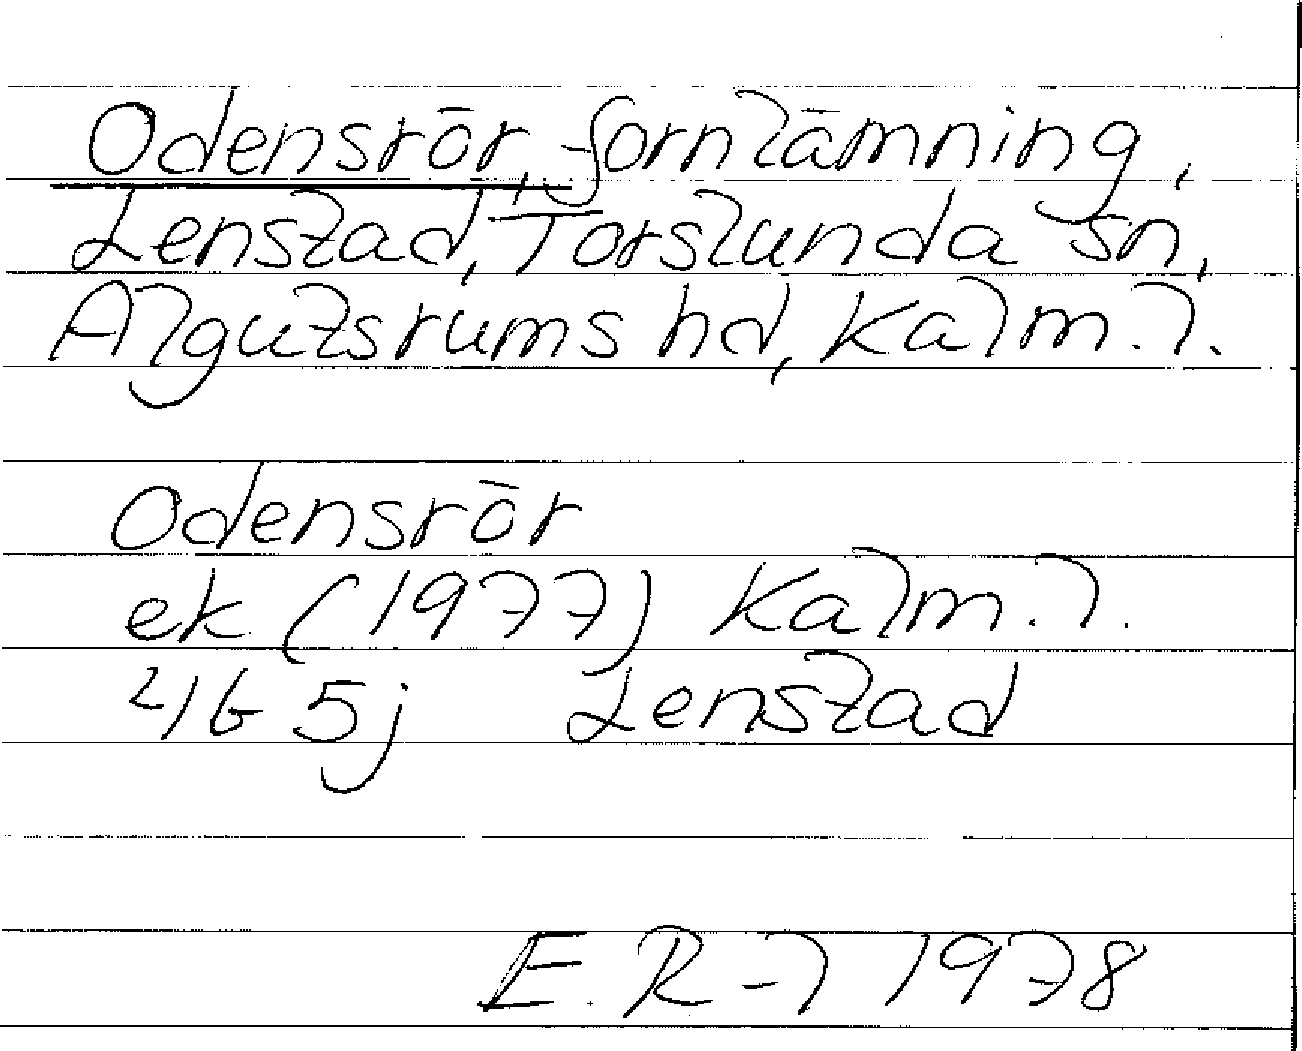 Odensrör, fornlämning,
Lenstad, Torslunda sn,
Algutsrums hd, Kalm. l.
Odensrör
ek (1977) Kalm. l.
4G 5j Lenstad
E. R-l 1978